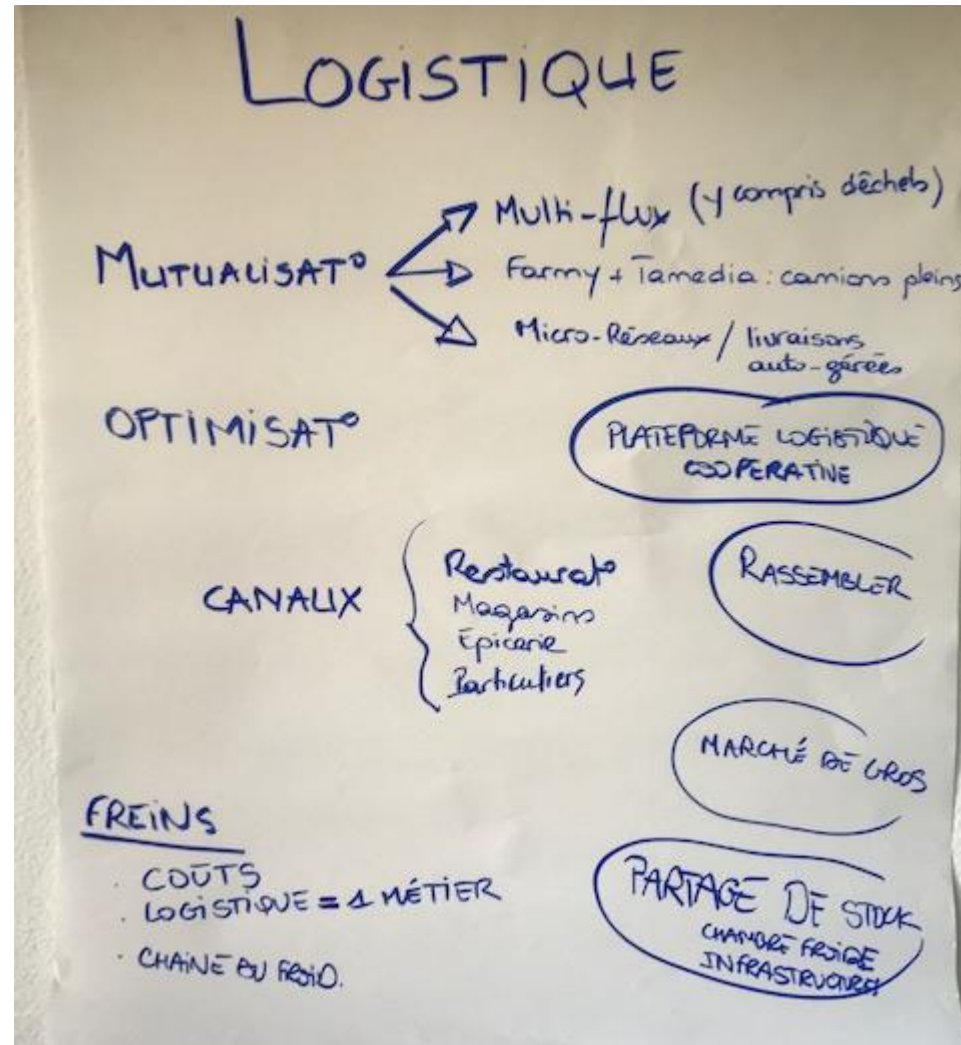 LOGISTIQUE
MUTUALISAT°
Multi-flux (y compris déchets)
Farmy + Tamedia : camions pleins
Micro-Réseaux / livraisons
auto-gérées
OPTIMISAT°
PLATEFORME LOGISTIQUE
COOPERATIVE
CANAUX
Restaurat°
Magasins
Épicerie
Particuliers
RASSEMBLER
MARCHÉ DE GROS
FREINS
· COÛTS
· LOGISTIQUE = 1 MÉTIER
· CHAINE DU FROID.
PARTAGE DE STOCK
CHAMBRE FROIDE
INFRASTRUCTURES